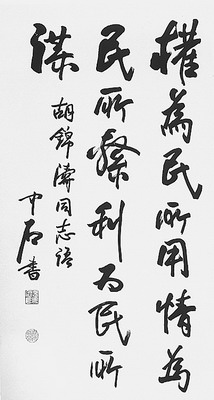 權為民所用情為
民所繫利为民所
謀
胡錦濤同志語
中石書